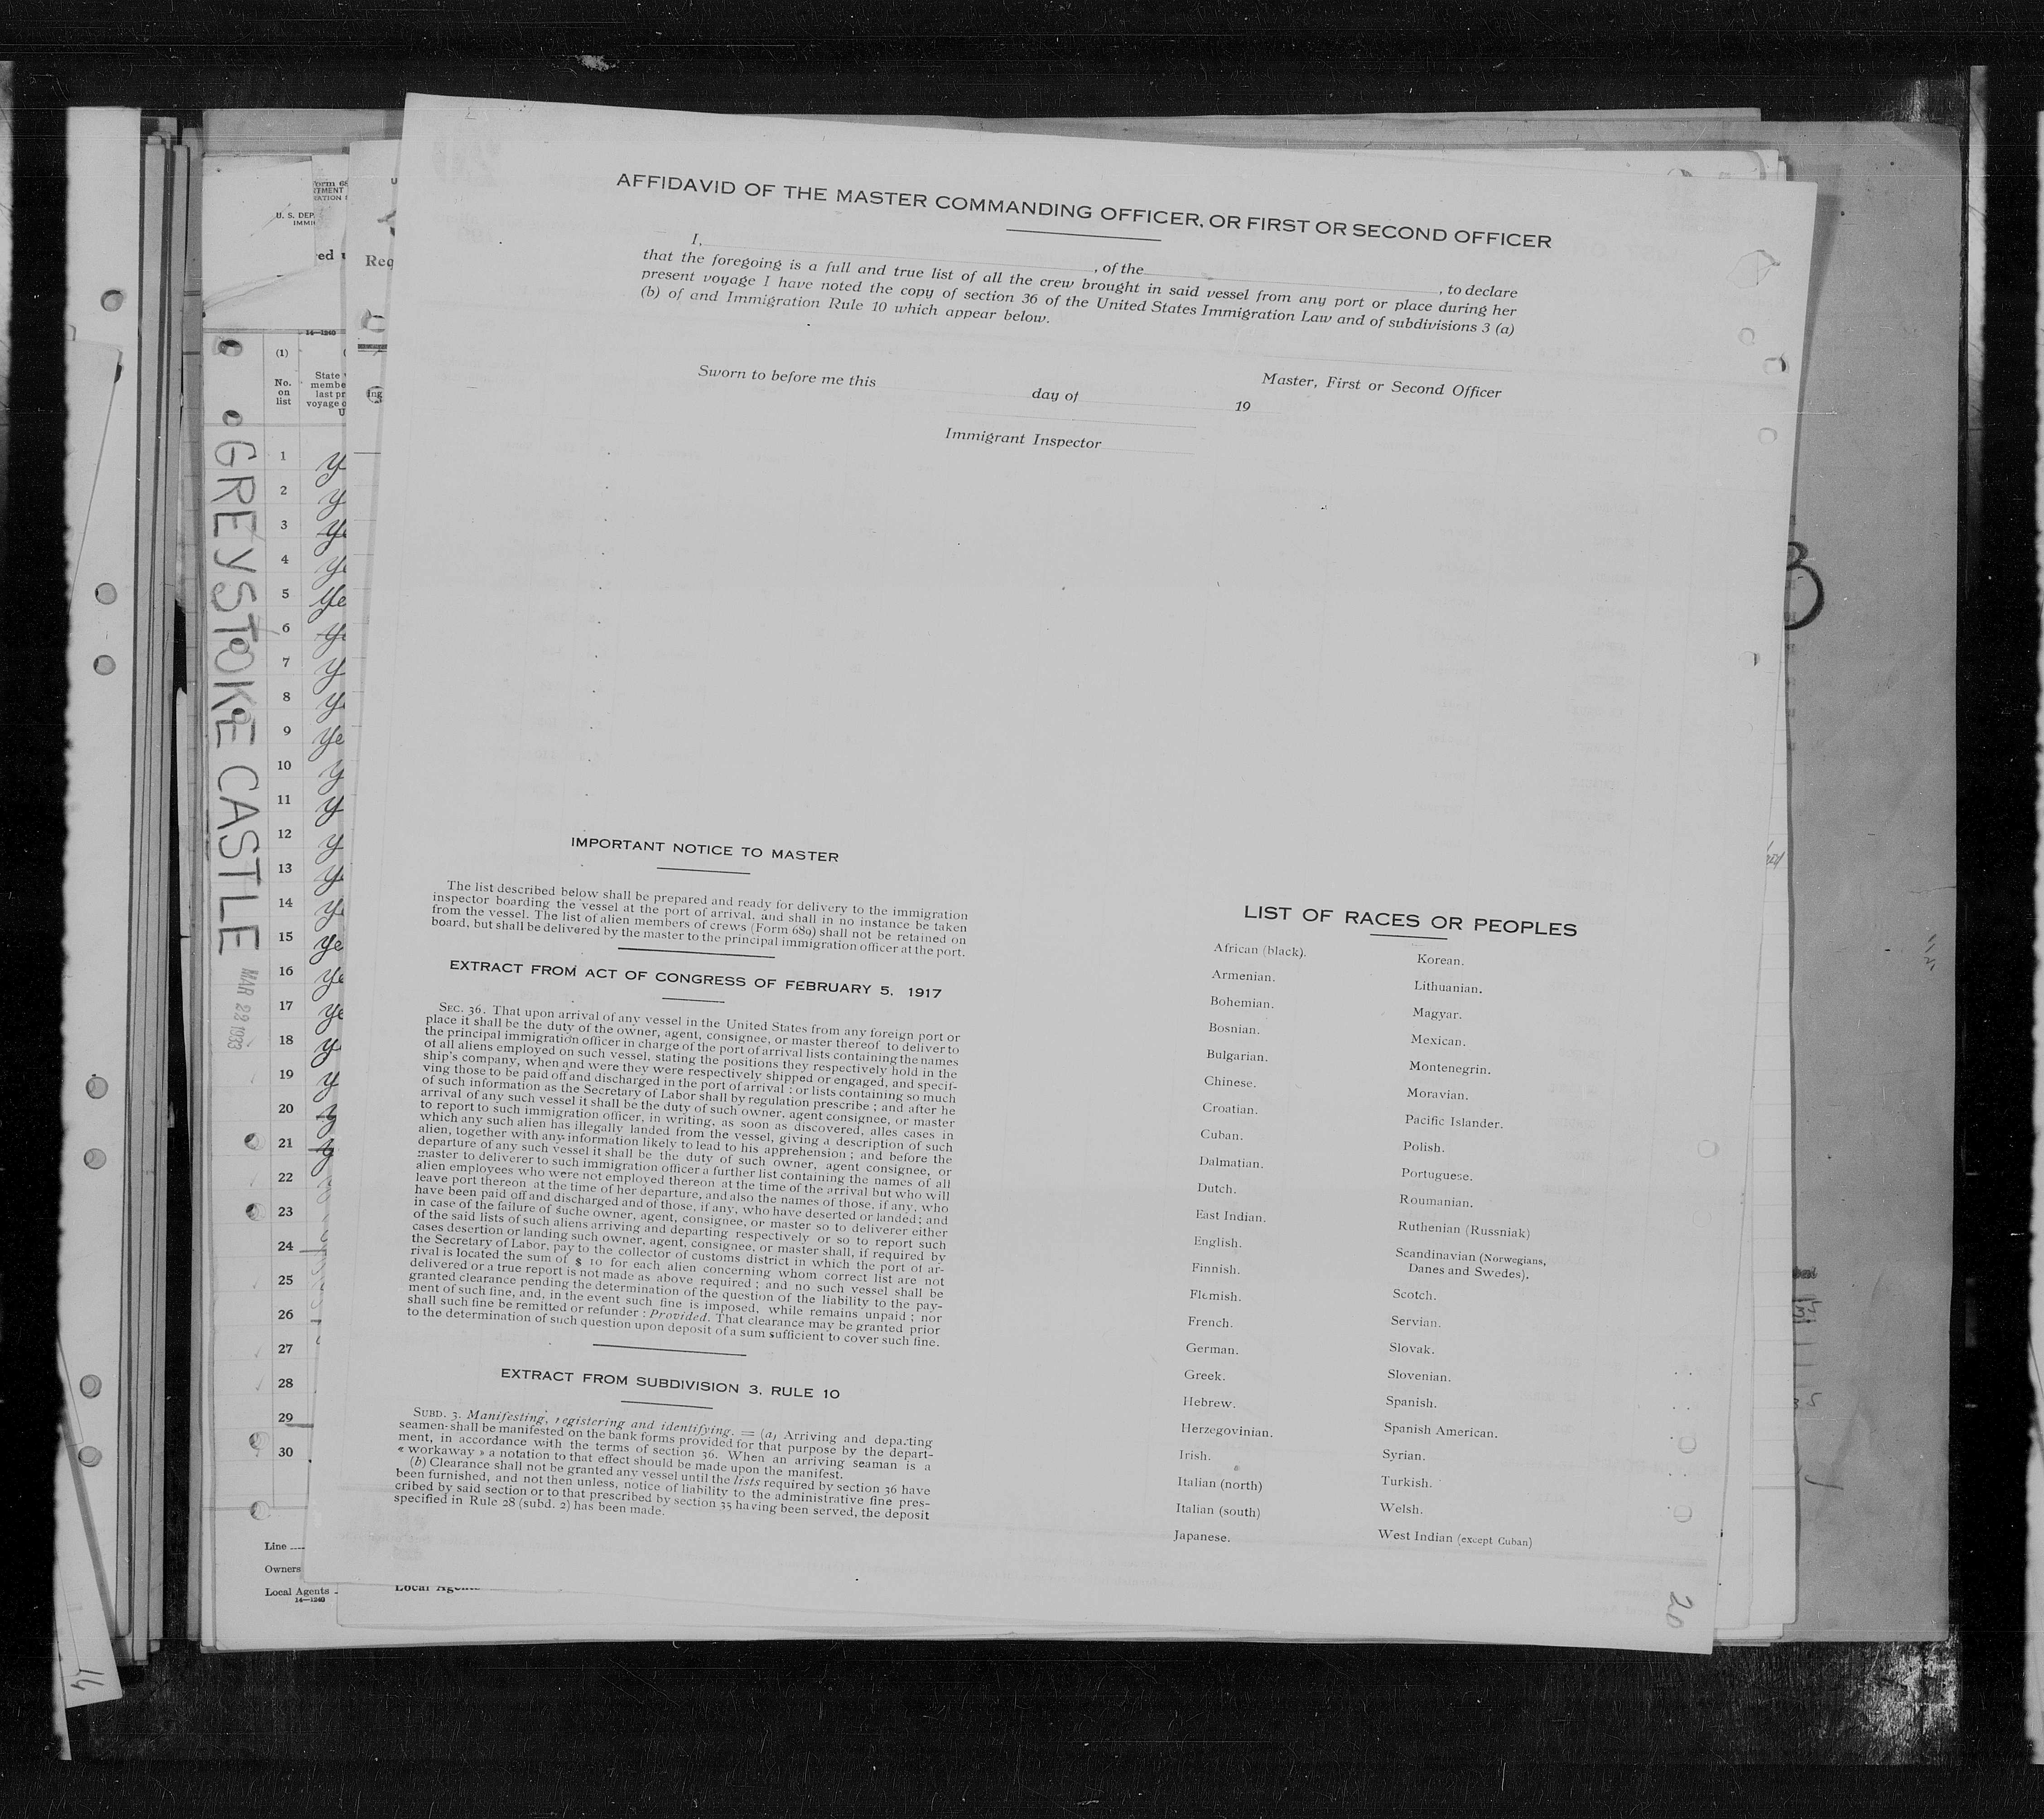 AFFIDAVID OF THE MASTER COMMANDING OFFICER, OR FIRST OR SECOND OFFICER
I, , of the , to declare
that the foregoing is a full and true list of all the crew brought in said vessel from any port or place during her
present voyage I have noted the copy of section 36 of the United States Immigration Law and of subdivisions 3 (a)
(b) of and Immigration Rule 10 which appear below.
Master, First or Second Officer
Sworn to before me this day of 19
Immigrant Inspector
IMPORTANT NOTICE TO MASTER
The list described below shall be prepared and ready for delivery to the immigration
inspector boarding the vessel at the port of arrival, and shall in no instance be taken
from the vessel. The list of alien members of crews (Form 689) shall not be retained on
board, but shall be delivered by the master to the principal immigration officer at the port.
EXTRACT FROM ACT OF CONGRESS OF FEBRUARY 5, 1917
SEC. 36. That upon arrival of any vessel in the United States from any foreign port or
place it shall be the duty of the owner, agent, consignee, or master thereof to deliver to
the principal immigration officer in charge of the port of arrival lists containing the names
of all aliens employed on such vessel, stating the positions they respectively hold in the
ship's company, when and were they were respectively shipped or engaged, and specif-
ving those to be paid off and discharged in the port of arrival ; or lists containing so much
of such information as the Secretary of Labor shall by regulation prescribe ; and after he
arrival of any such vessel it shall be the duty of such owner, agent consignee, or master
to report to such immigration officer, in writing, as soon as discovered, alles cases in
which any such alien has illegally landed from the vessel, giving a description of such
alien, together with any information likely to lead to his apprehension ; and before the
departure of any such vessel it shall be the duty of such owner, agent consignee, or
master to deliverer to such immigration officer a further list containing the names of all
alien employees who were not employed thereon at the time of the arrival but who will
leave port thereon at the time of her departure, and also the names of those, if any, who
have been paid off and discharged and of those, if any, who have deserted or landed ; and
in case of the failure of suche owner, agent, consignee, or master so to deliverer either
of the said lists of such aliens arriving and departing respectively or so to report such
cases desertion or landing such owner, agent, consignee, or master shall, if required by
the Secretary of Labor, pay to the collector of customs district in which the port of ar-
rival is located the sum of $ 10 for each alien concerning whom correct list are not
delivered or a true report is not made as above required ; and no such vessel shall be
granted clearance pending the determination of the question of the liability to the pay-
ment of such fine, and, in the event such fine is imposed, while remains unpaid ; nor
shall such fine be remitted or refunder : Provided. That clearance may be granted prior
to the determination of such question upon deposit of a sum sufficient to cover such fine.
EXTRACT FROM SUBDIVISION 3, RULE 10
SUBD. 3. Manifesting, registering and identifying. = (a) Arriving and departing
seamen shall be manifested on the bank forms provided for that purpose by the depart-
ment, in accordance with the terms of section 36. When an arriving seaman is a
« workaway » a notation to that effect should be made upon the manifest.
(b) Clearance shall not be granted any vessel until the lists required by section 36 have
been furnished, and not then unless, notice of liability to the administrative fine pres-
cribed by said section or to that prescribed by section 35 having been served, the deposit
specified in Rule 28 (subd. 2) has been made.
LIST OF RACES OR PEOPLES
African (black).
Armenian.
Bohemian.
Bosnian.
Bulgarian.
Chinese.
Croatian.
Cuban.
Dalmatian.
Dutch.
East Indian.
English.
Finnish.
Flemish.
French.
German.
Greek.
Hebrew.
Herzegovinian.
Irish.
Italian (north)
Italian (south)
Japanese.
Korean.
Lithuanian.
Magyar.
Mexican.
Montenegrin.
Moravian.
Pacific Islander.
Polish.
Portuguese.
Roumanian.
Ruthenian (Russniak)
Scandinavian (Norwegians,
Danes and Swedes).
Scotch.
Servian.
Slovak.
Slovenian.
Spanish.
Spanish American.
Syrian.
Turkish.
Welsh.
West Indian (except Cuban)
20
GREYSTOKE CASTLE
MAR 22 1933
U. S. DEP
IMMI
Req
14—1240
(1)
No.
on
list
State
membe
last pr
voyage o
U
1
2
3
4
5
6
7
8
9
10
11
12
13
14
15
16
17
18
19
20
21
22
23
24
25
26
27
28
29
30
Line
Owners
Local Agents
14—1240